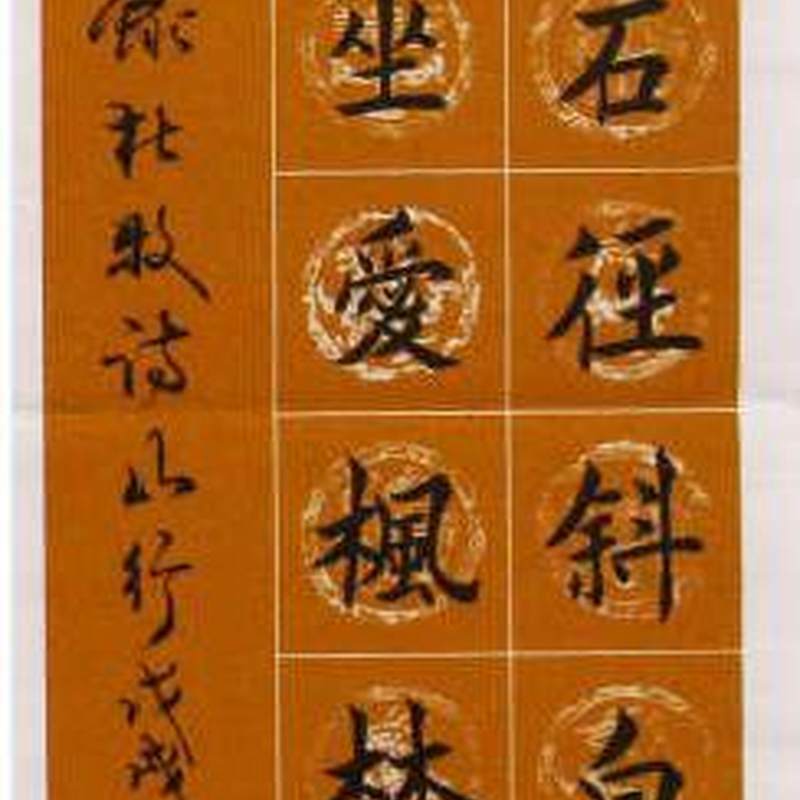 石徑斜白
坐愛楓林
錄杜牧詩山行戊戌